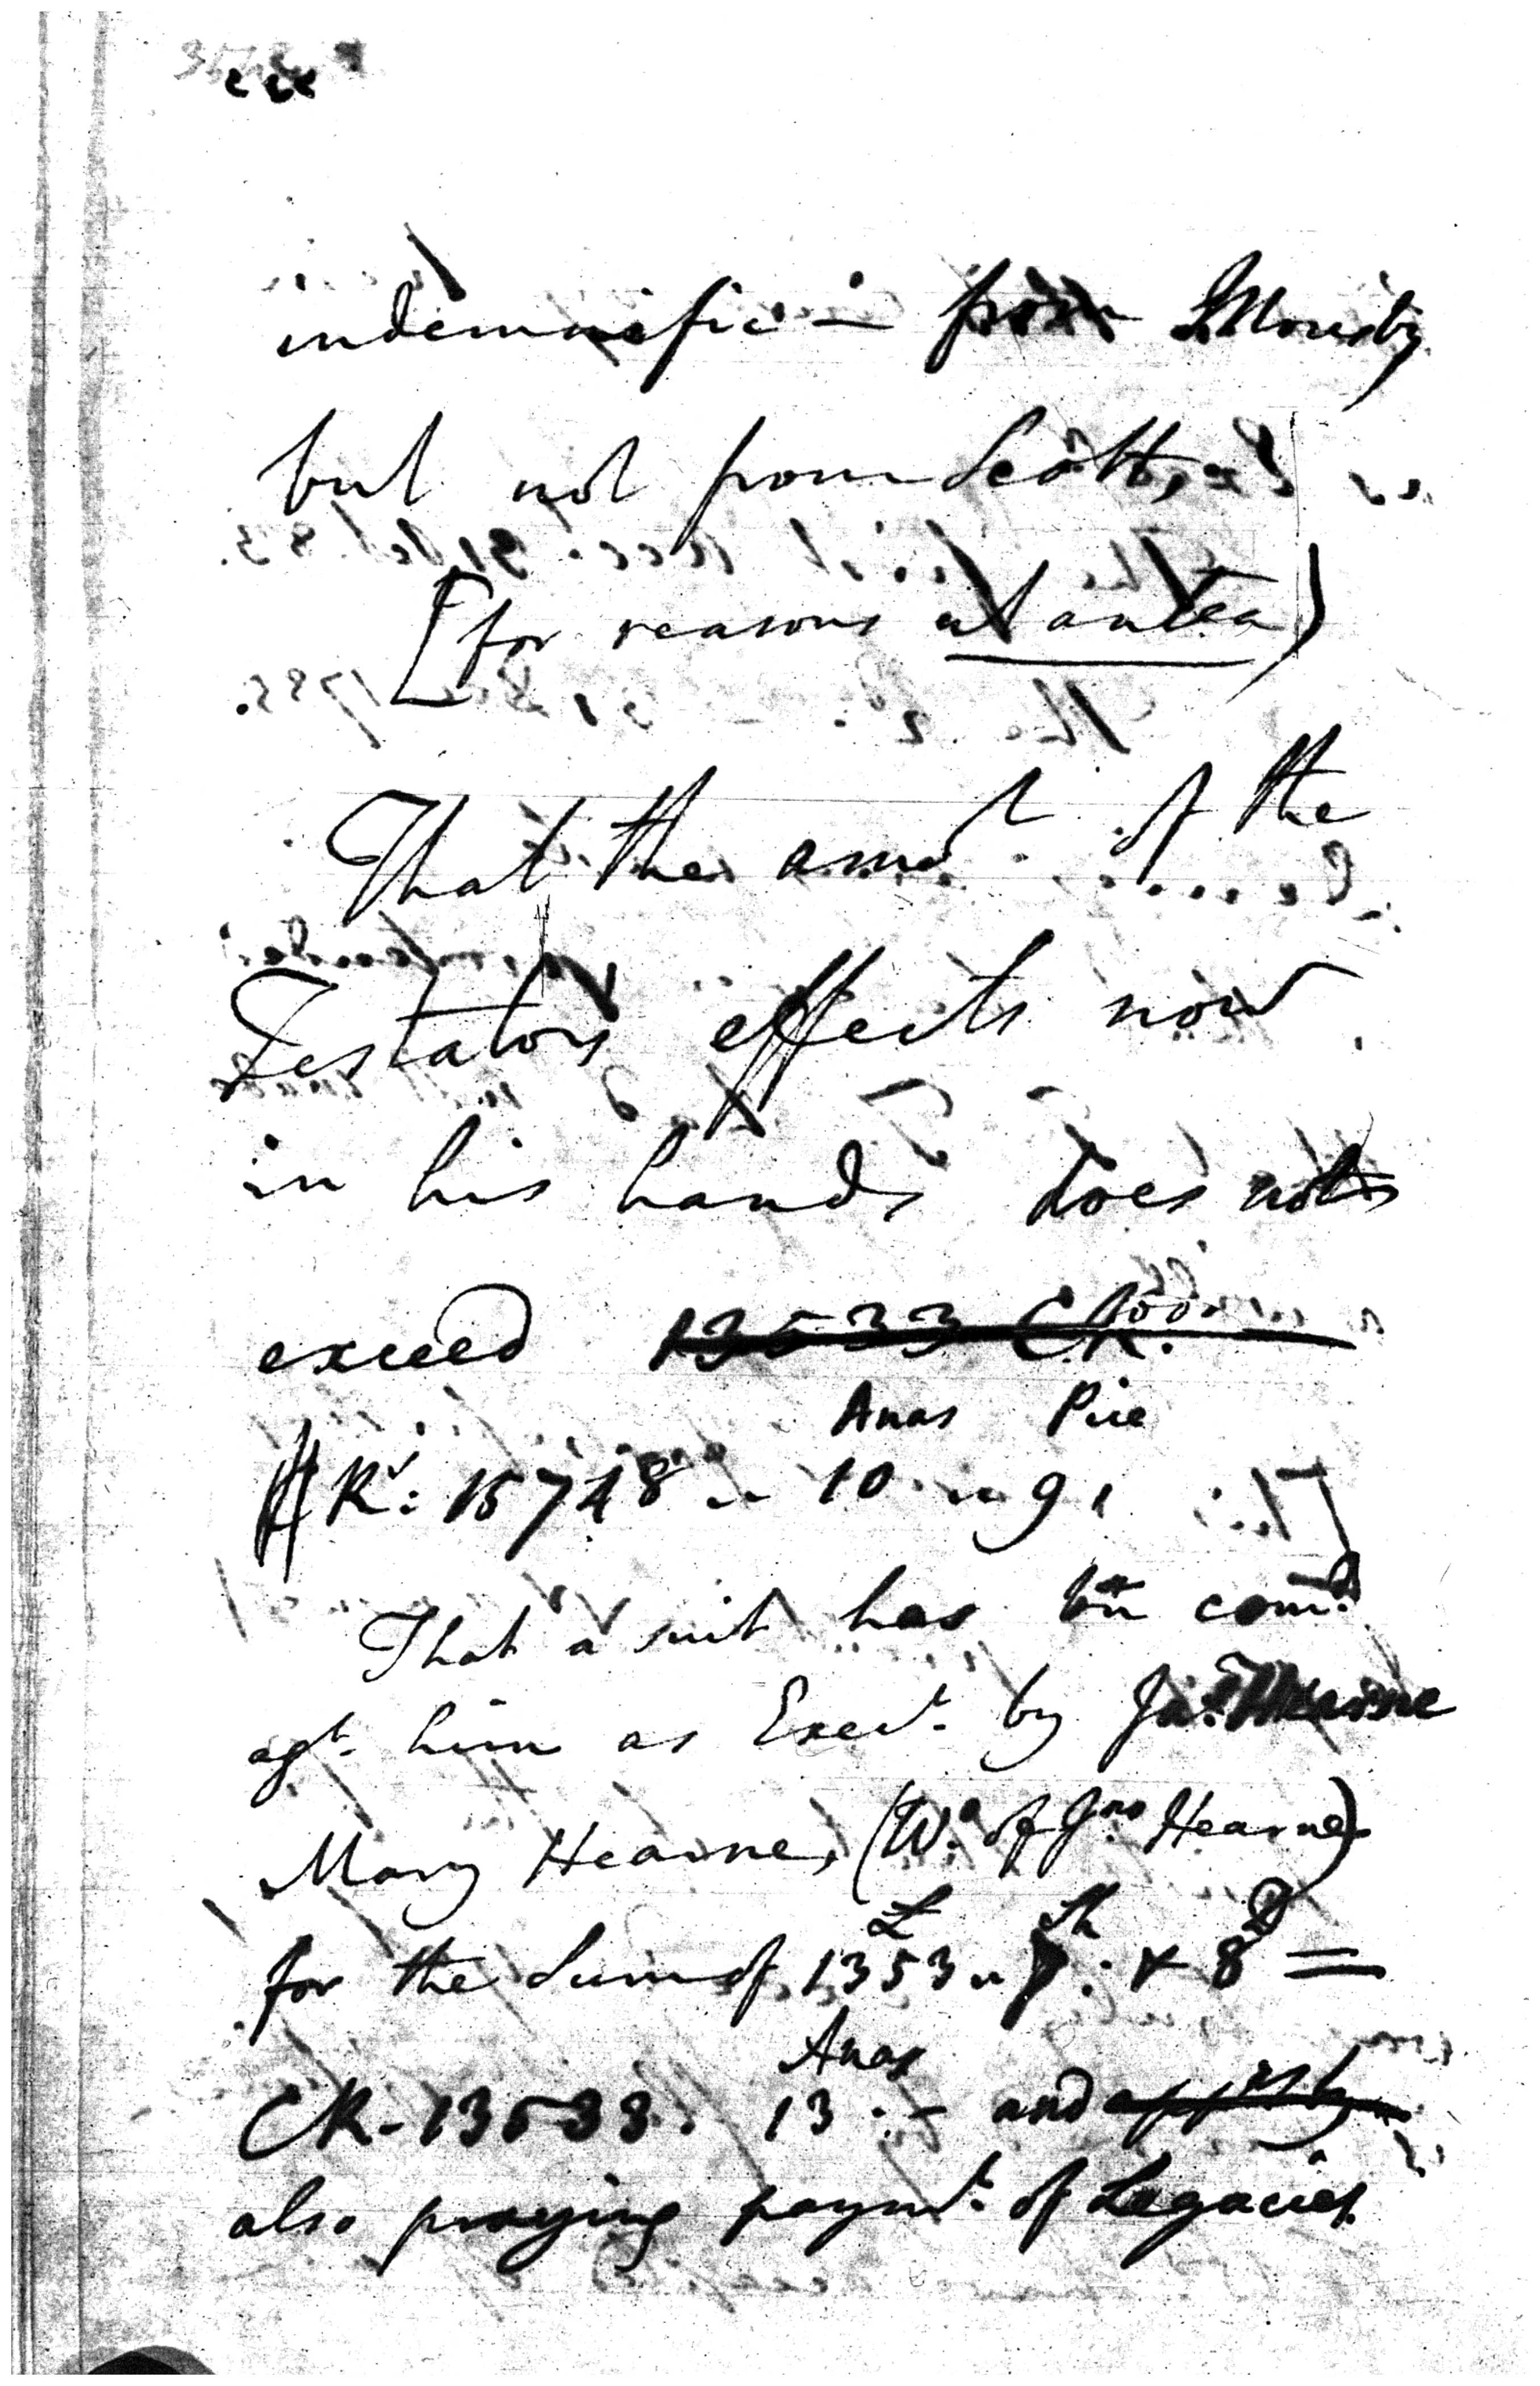 indemnific - from Mousby
but not from Scott,
[for reasons ut antea)
That the amot. of the
Testators effects now
in his hands does not
exceed 13533 CR.
Anas Pice
R: 15748 " 10 " 9
That a suit has bn comd.
agt. him as Execr. by Jno.
Mary Hearne, (Wo. of Jno Hearne)
£ Sh D
for the Sum of 1353 " 7 : & 8 =
Anas
CR - 13533 . 13 : - and
also praying paymt. of Legacies